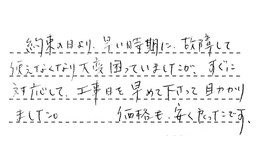 約束の日より、早い時期に、故障して
使えなくなり大変困っていましたが、すぐに
対応して、工事日を早めて下さって助かり
ました。 価格も、安く良かったです。